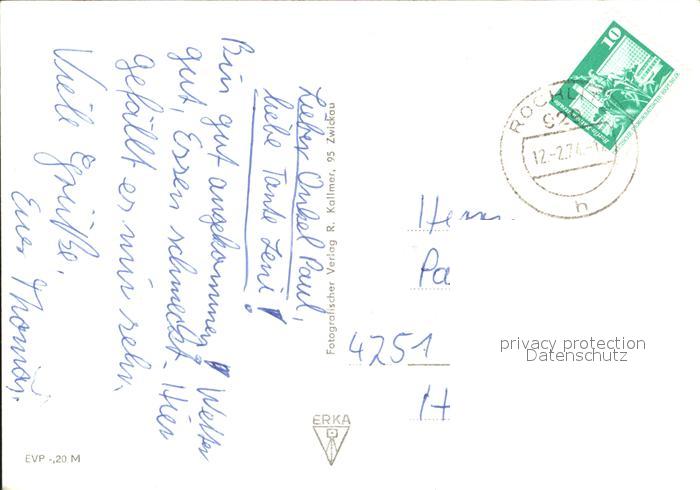 Lieber Onkel Paul,
liebe Tante Leni!
Bin gut angekommen, Wetter
gut, Essen schmeckt. Hier
gefällt es mir sehr.
Viele Grüße.
Euer Thomas.
Fotografischer Verlag R. Kallmer, 95 Zwickau
10
ROCHL
12.-2.74.-1
h
Herrn
Pa
4251
H
privacy protection
Datenschutz
ERKA
EVP -,20 M